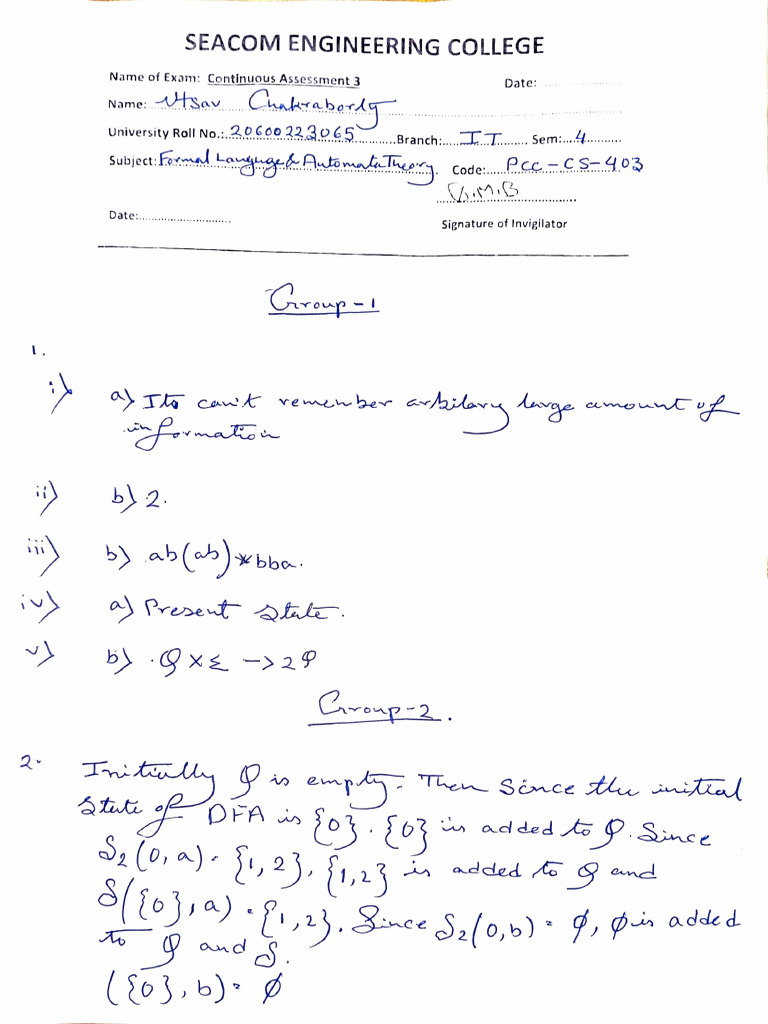 SEACOM ENGINEERING COLLEGE
Name of Exam: Continuous Assessment 3 Date:
Name: Utsav Chakrabordy
University Roll No.: 20600223065 Branch: IT Sem: 4
Subject: Formal Languge & Automata Theory. Code: PCC-CS-403
Date: Signature of Invigilator
Group-1
1.
i) a) Its can't remember arbilary large amount of
information
ii) b) 2.
iii) b) ab(ab)*bba.
iv) a) Present State.
v) b) Q×Σ -> 2Q
Group-2.
2. Initially Q is empty. Then Since the initial
State of DFA is {0}. {0} is added to Q. Since
S2(0,a) = {1,2}, {1,2} is added to Q and
S({0},a) = {1,2}. Since S2(0,b) = ϕ, ϕ is added
to Q and S.
({0},b) = ϕ